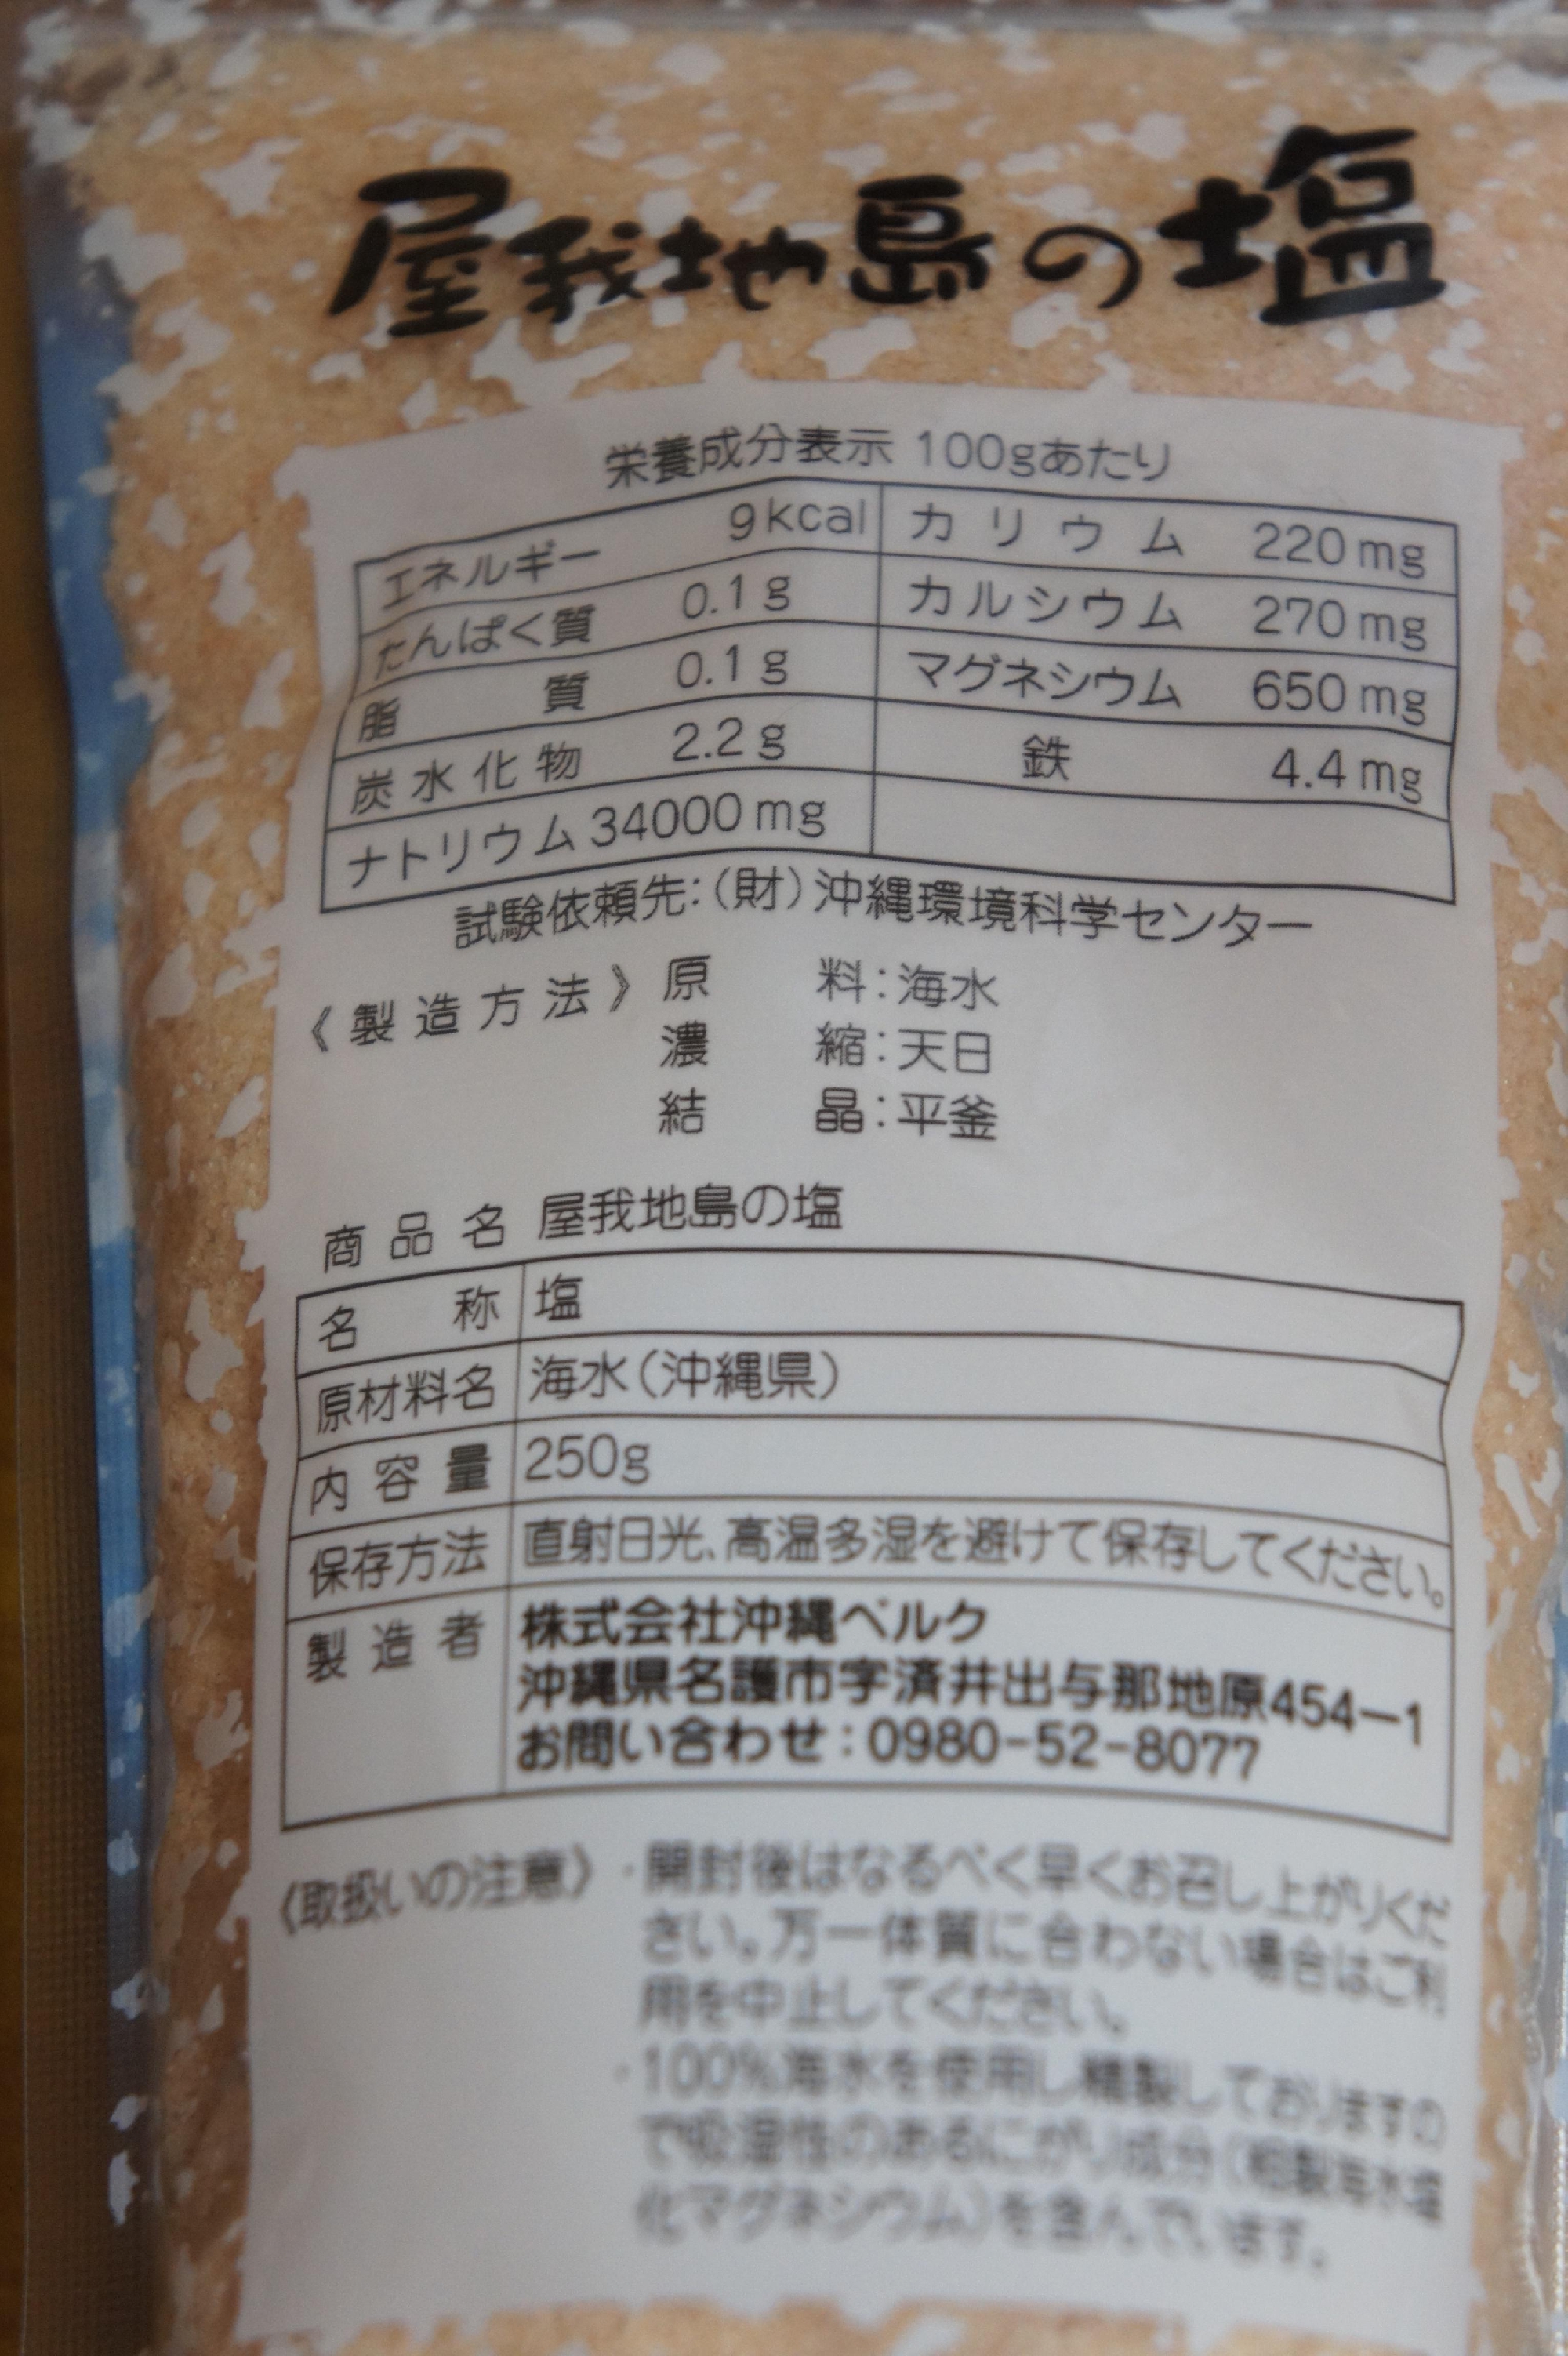 屋我地島の塩
栄養成分表示 100gあたり
エネルギー 9kcal カリウム 220mg
たんぱく質 0.1g カルシウム 270mg
脂質 0.1g マグネシウム 650mg
炭水化物 2.2g 鉄 4.4mg
ナトリウム 34000mg
試験依頼先:(財)沖縄環境科学センター
《製造方法》原料:海水
濃縮:天日
結晶:平釜
商品名 屋我地島の塩
名称 塩
原材料名 海水(沖縄県)
内容量 250g
保存方法 直射日光、高温多湿を避けて保存してください。
製造者 株式会社沖縄ベルク
沖縄県名護市字済井出与那地原454ー1
お問い合わせ:0980-52-8077
〈取扱いの注意〉・開封後はなるべく早くお召し上がりくだ
さい。万一体質に合わない場合はご利
用を中止してください。
・100%海水を使用し精製しておりますの
で吸湿性のあるにがり成分(粗製海水塩
化マグネシウム)を含んでいます。